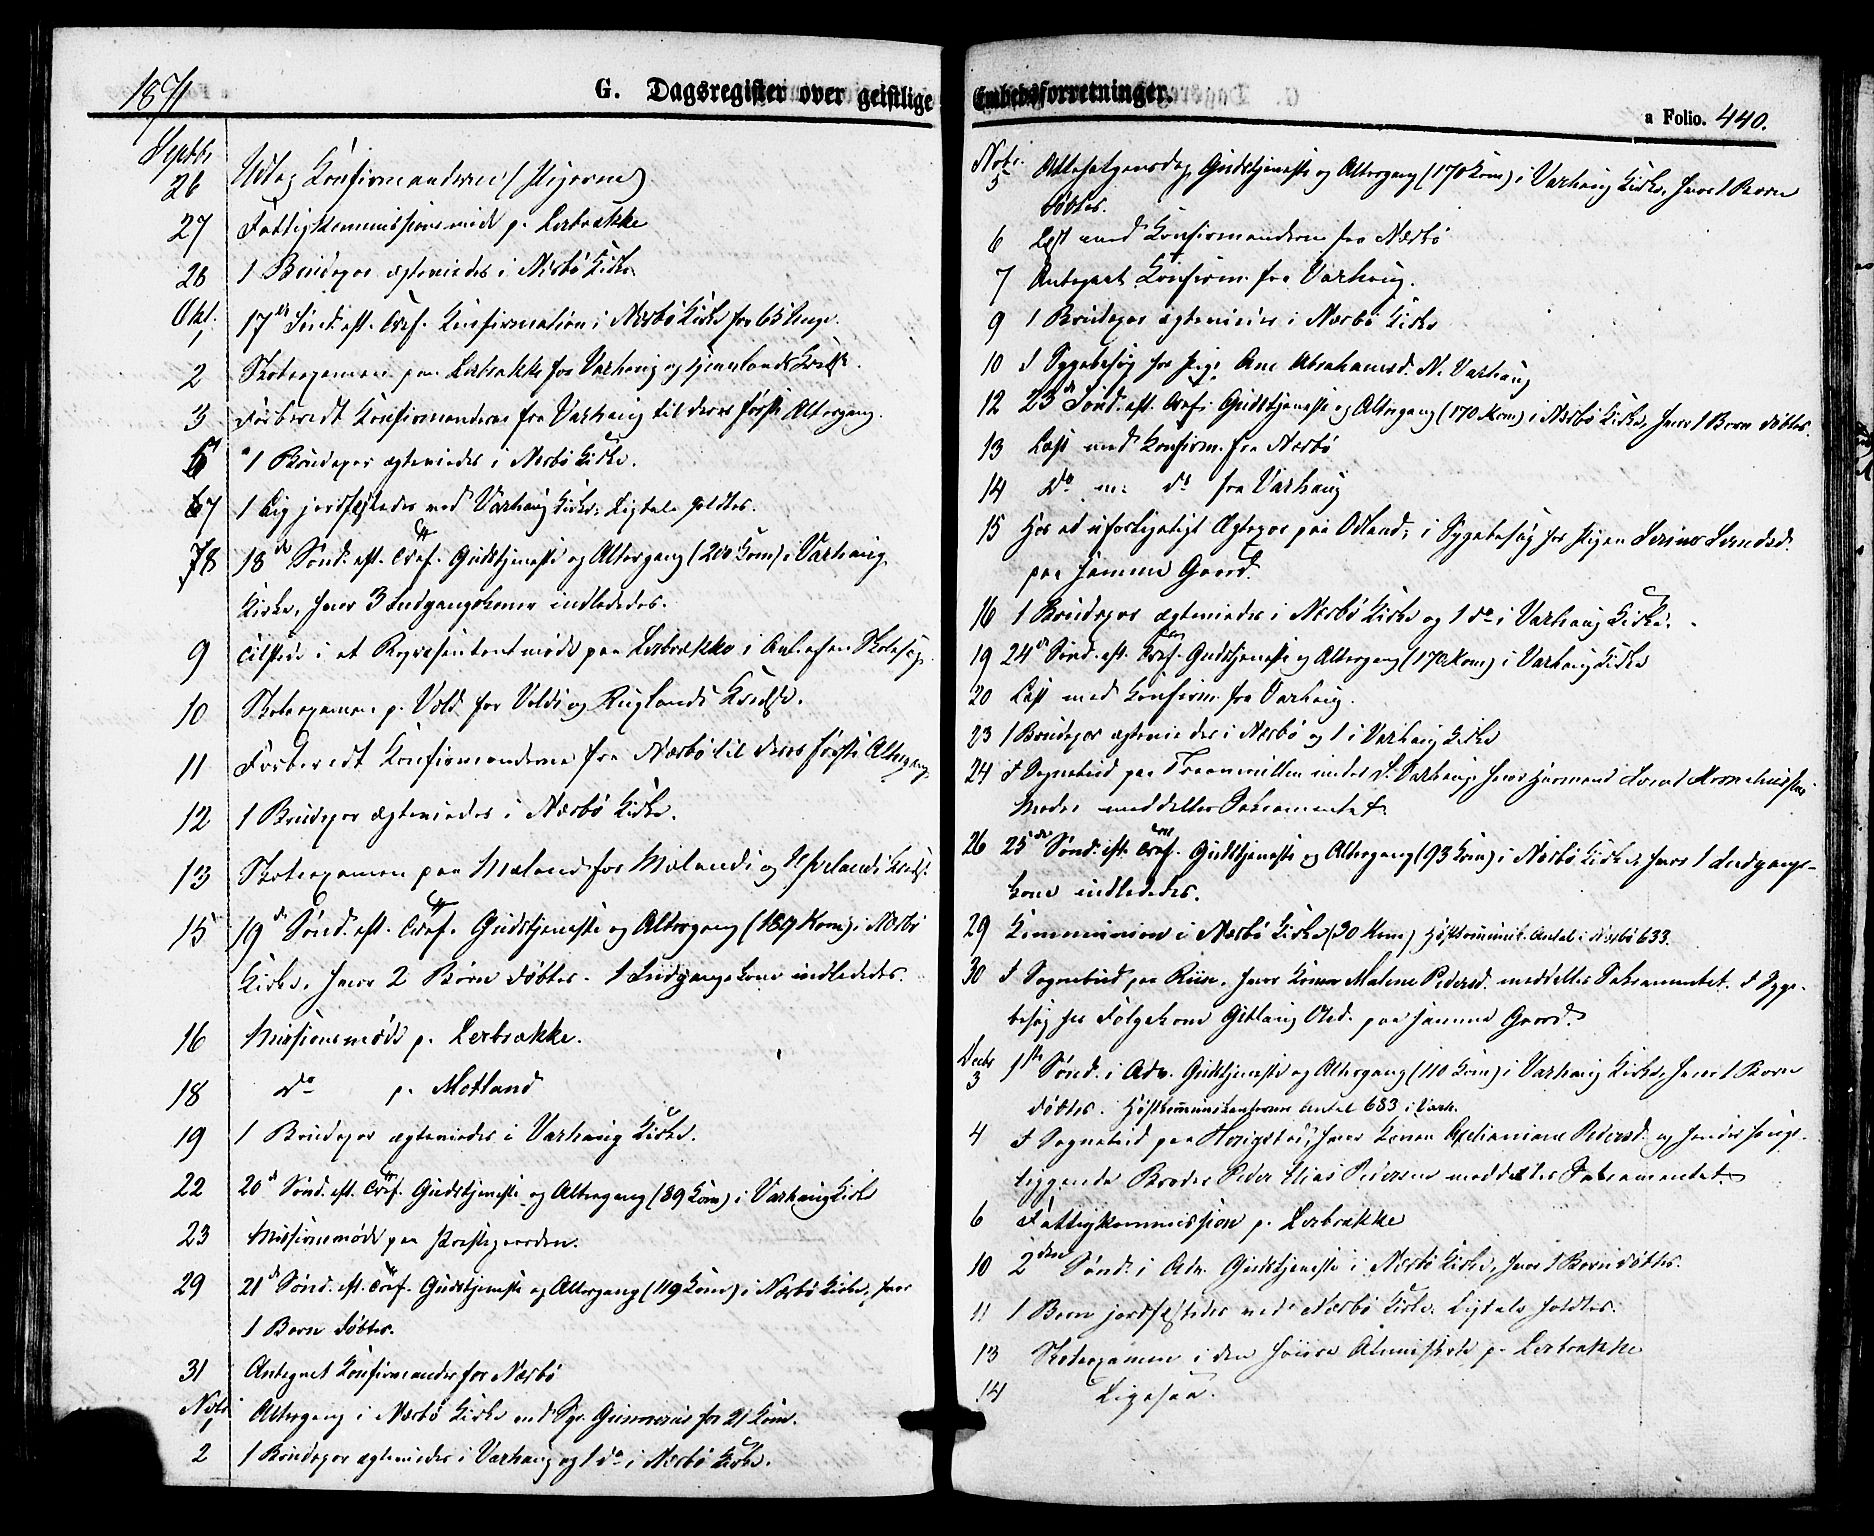 1871
G. Dagsregister over geistlige Embedsforretninger.
a Folio. 440.
Septbr
26 Udtog Konfirmanderne (Pigerne)
27 Fattigkommissionsmøde p. Lerbrække
28 1 Brudepar ægteviedes i Nærbø Kirke
Okt.
1 17de Sønd. eft. Tref. Konfirmation i Nærbø Kirke for 65 Unge.
2 Skoleexamen paa Lerbrække for Varhaug og Kreds.
3 Forberedt Konfirmanderne fra Varhaug til deres første Altergang.
5 1 Brudepar ægteviedes i Nærbø Kirke.
7 1 Lig jordfæstedes ved Varhaug Kirke, Ligtale holdtes.
8 18de Sønd. eft. Tref. Gudstjeneste og Altergang (210 Kom) i Varhaug
Kirke, hvor 3 Indgangskoner indlededes.
9 Tilstede i et Repræsentantmøde paa Lerbrække i Anl. af en Skolesag.
10 Skoleexamen p. Vold for Volds og Ruglands Kredse.
11 Forberedt Konfirmanderne fra Nærbø til deres første Altergang.
12 1 Brudepar ægteviedes i Nærbø Kirke.
13 Skoleexamen paa Mæland for Mælands og Kreds.
15 19de Sønd. eft. Tref. Gudstjeneste og Altergang (189 Kom) i Nærbø
Kirke, hvor 2 Børn døbtes. 1 Indgangskone indlededes.
16 Missionsmøde p. Lerbrække.
18 do p. Motland
19 1 Brudepar ægteviedes i Varhaug Kirke.
22 20de Sønd. eft. Tref. Gudstjeneste og Altergang (89 Kom) i Varhaug Kirke
23 Missionsmøde paa Præstegaarden.
29 21de Sønd. eft. Tref. Gudstjeneste og Altergang (119 Kom) i Nærbø Kirke, hvor
1 Barn døbtes.
31 Antegnet Konfirmander for Nærbø
Novbr
1 Altergang i Nærbø Kirke ved Sgr. for 21 Kom.
2 1 Brudepar ægteviedes i Varhaug og 1 do i Nærbø Kirke.
Novbr.
5 Allehelgensdag Gudstjeneste og Altergang (170 Kom) i Varhaug Kirke, hvor 1 Barn
døbtes.
6 Læst med Konfirmanderne fra Nærbø
7 Antegnet Konfirm. fra Varhaug.
9 1 Brudepar ægteviedes i Nærbø Kirke
10 I Sygebesøg hos Pige Ane Abrahamsd. N. Varhaug
12 23de Sønd. eft. Tref. Gudstjeneste og Altergang (170 Kom) i Nærbø Kirke, hvor 1 Barn døbtes.
13 Læst med Konfirm. fra Nærbø
14 do m. do fra Varhaug
15 Hos et uforligeligt Ægtepar paa Odland; i Sygebesøg hos Pigen
paa samme Gaard.
16 1 Brudepar ægteviedes i Nærbø Kirke og 1 do i Varhaug Kirke.
19 24de Sønd. eft. Tref. Gudstjeneste og Altergang (170 Kom) i Varhaug Kirke
20 Læst med Konfirm. fra Varhaug.
23 1 Brudepar ægteviedes i Nærbø og 1 i Varhaug Kirke
24 I Sognebud paa under S. Varhaug, hvor Huusmand
Moder meddeltes Sakramentet.
26 25de Sønd. eft. Tref. Gudstjeneste og Altergang (93 Kom) i Nærbø Kirke, hvor 1 Indgangs-
kone indlededes.
29 Kommunion i Nærbø Kirke (20 Kom) Høstkommunik. Antal i Nærbø 633.
30 I Sognebud paa Riise, hvor Konen Malene Pedersd. meddeltes Sakramentet. I Syge-
besøg hos Følgekone Olsd. paa samme Gaard.
Decbr
3 1ste Sønd. i Adv. Gudstjeneste og Altergang (110 Kom) i Varhaug Kirke, hvor 1 Barn
døbtes. Høstkommunikanternes Antal 683 i Varh.
4 I Sognebud paa Haugstad, hvor Konen Pedersd. og hendes
liggende Broder Peder Elias Pedersen meddeltes Sakramentet
6 Fattigkommission p. Lerbrække
10 2den Sønd. i Adv. Gudstjeneste i Nærbø Kirke, hvor 1 Barn døbtes.
11 1 Barn jordfæstedes ved Nærbø Kirke. Ligtale holdtes.
13 Skoleexamen i den høiere Almueskole p. Lerbrække
14 Ligesaa.